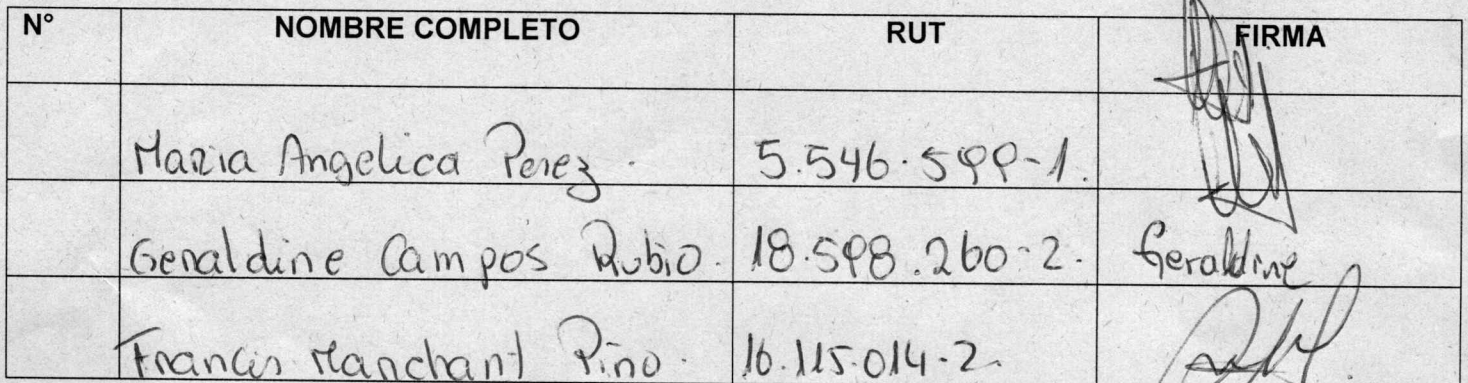 N° NOMBRE COMPLETO RUT FIRMA
Maria Angelica Perez. 5.546.599-1.
Geraldine Campos Rubio. 18.598.260-2. Geraldine
Francis Manchant Pino. 16.115.014-2.